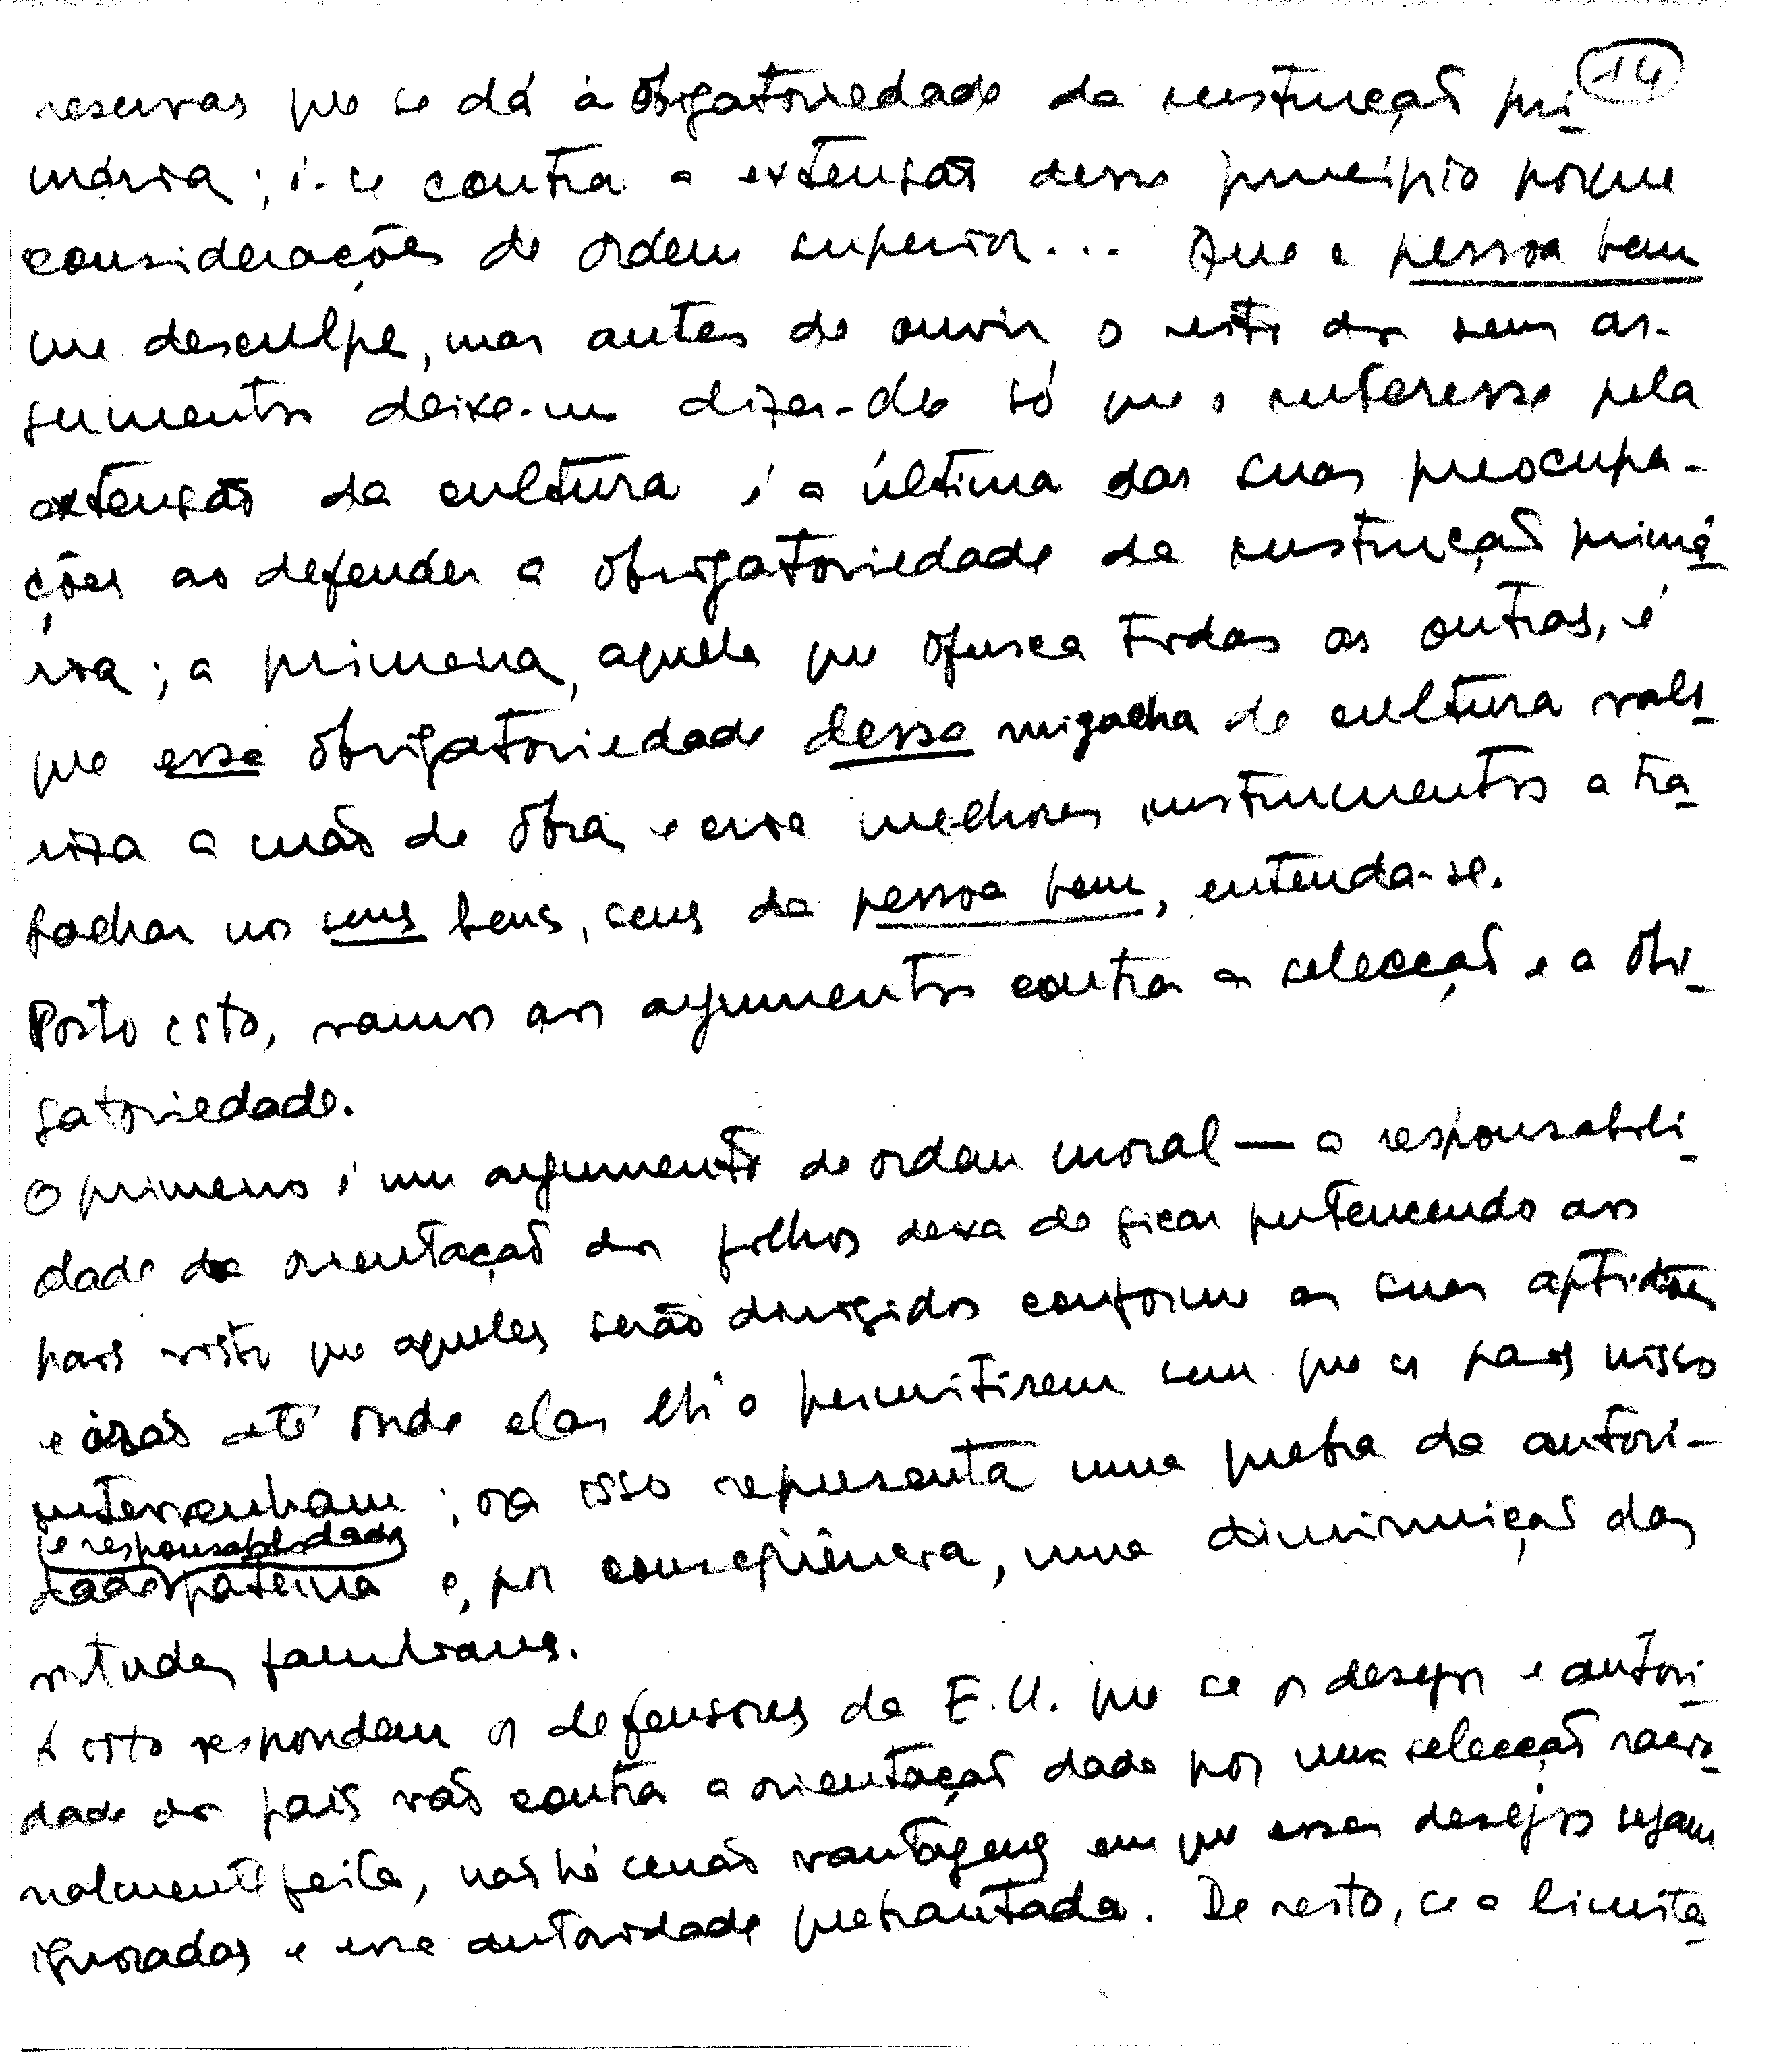 14
reservas que se dá à obrigatoriedade da instrução pri-
mária; é-se contra a extensão desse princípio porque
considerações de ordem superior... Que a pessoa bem
me desculpe, mas antes de ouvir o resto dos seus ar-
gumentos deixe-me dizer-lhe só que o interesse pela
extensão da cultura é a última das suas preocupa-
ções ao defender a obrigatoriedade da instrução primá-
ria; a primeira, aquela que ofusca todas as outras, é
que essa obrigatoriedade dessa migalha de cultura valo-
riza a mão de obra e cria melhores instrumentos a tra-
balhar nos seus bens, seus da pessoa bem, entenda-se.
Posto isto, vamos aos argumentos contra a selecção e a obri-
gatoriedade.
O primeiro é um argumento de ordem moral — a responsabili-
dade da orientação dos filhos deixa de ficar pertencendo aos
pais visto que aqueles serão dirigidos conforme as suas aptidões
e irão até onde elas lh'o permitirem sem que os pais nisso
intervenham; ora isso representa uma quebra da autori-
e responsabilidade
dade paterna e, por conseqüência, uma diminuição das
virtudes familiares.
A isto respondem os defensores da E.U. que se os desejos e autori-
dade dos pais vão contra a orientação dada por uma selecção racio-
nalmente feita, não há senão vantagens em que esses desejos sejam
ignorados e essa autoridade quebrantada. De resto, se a limita-